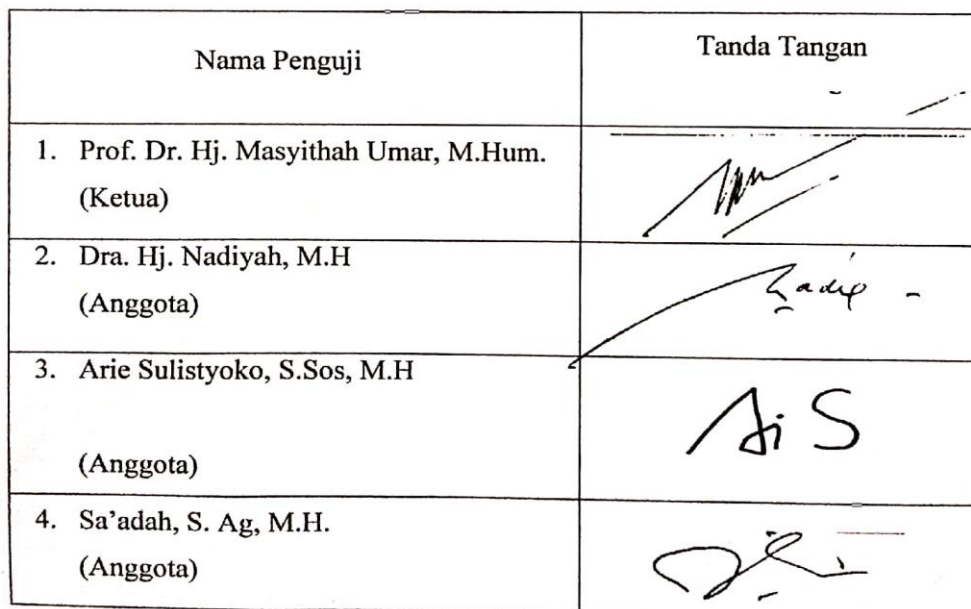 Nama Penguji
Tanda Tangan
1. Prof. Dr. Hj. Masyithah Umar, M.Hum.
(Ketua)
2. Dra. Hj. Nadiyah, M.H
(Anggota)
3. Arie Sulistyoko, S.Sos, M.H
(Anggota)
4. Sa’adah, S. Ag, M.H.
(Anggota)